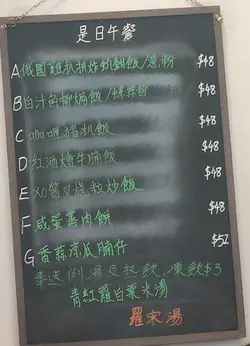 是日午餐
A俄國雞扒拼炸魚柳飯/意粉 $48
B白汁魚柳焗飯/螺絲粉 $48
C咖喱豬扒飯 $48
D紅酒燴牛腩飯 $48
E XO醬叉燒粒炒飯 $48
F咸蛋蒸肉餅 $48
G香蒜涼瓜腩仔 $52
奉送例湯及熱飲,凍飲$3
青紅蘿白粟米湯
羅宋湯